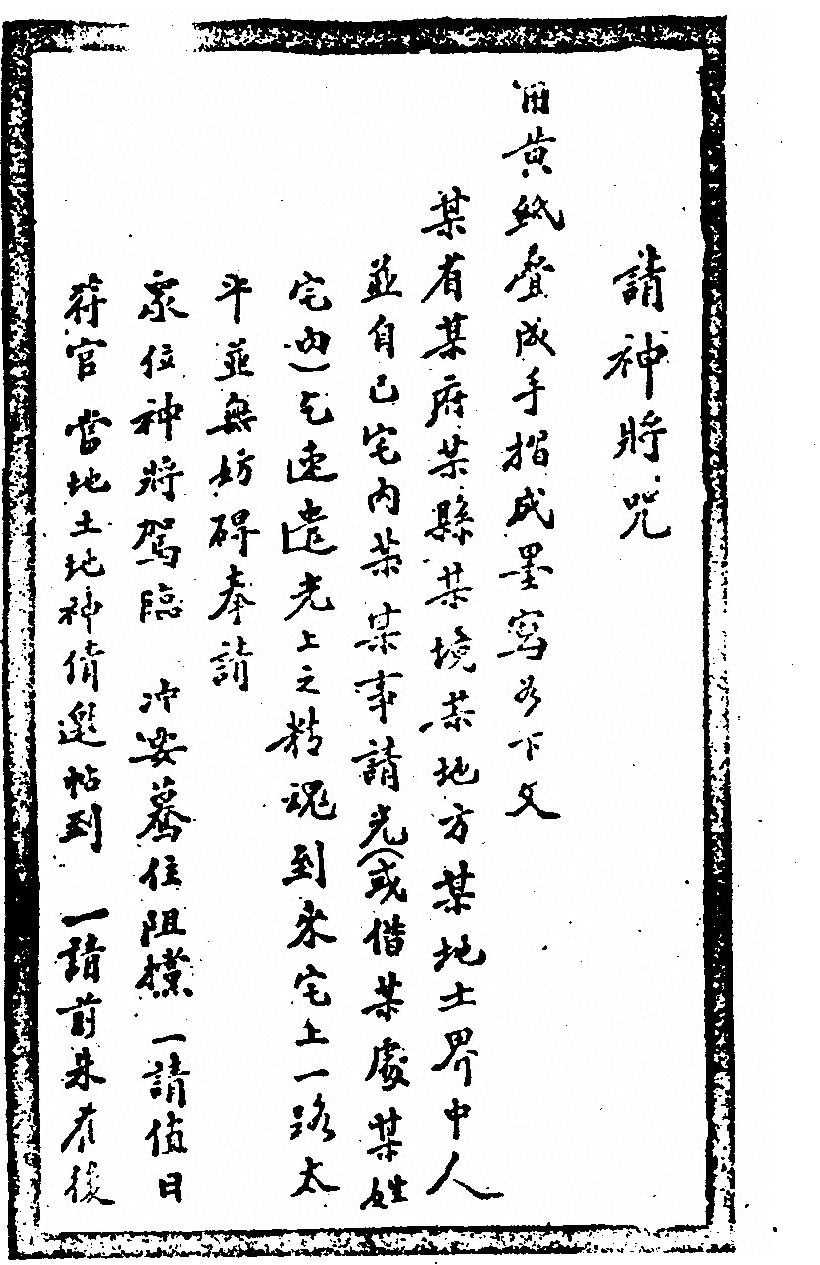 請神將咒
用黄紙叠成手摺成墨寫为下文
某省某府某縣某境某地方某地士界中人
並自己宅内某某事請光(或借某處某姓
宅内)乞速遣光上之精魂到来宅上一路太
平並無妨碍奉請
衆位神將駕臨 冲安蓦住阻攩 一請值日
符官 當地土地神倩邀帖到 一請前朱雀後